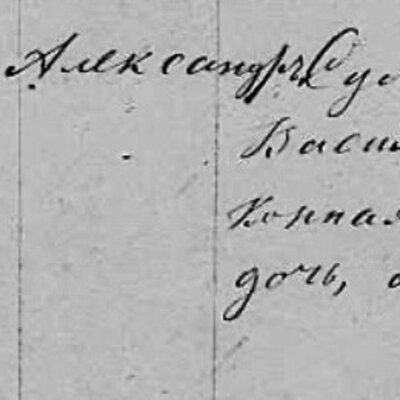 Александръ Су
Васи
дочь,